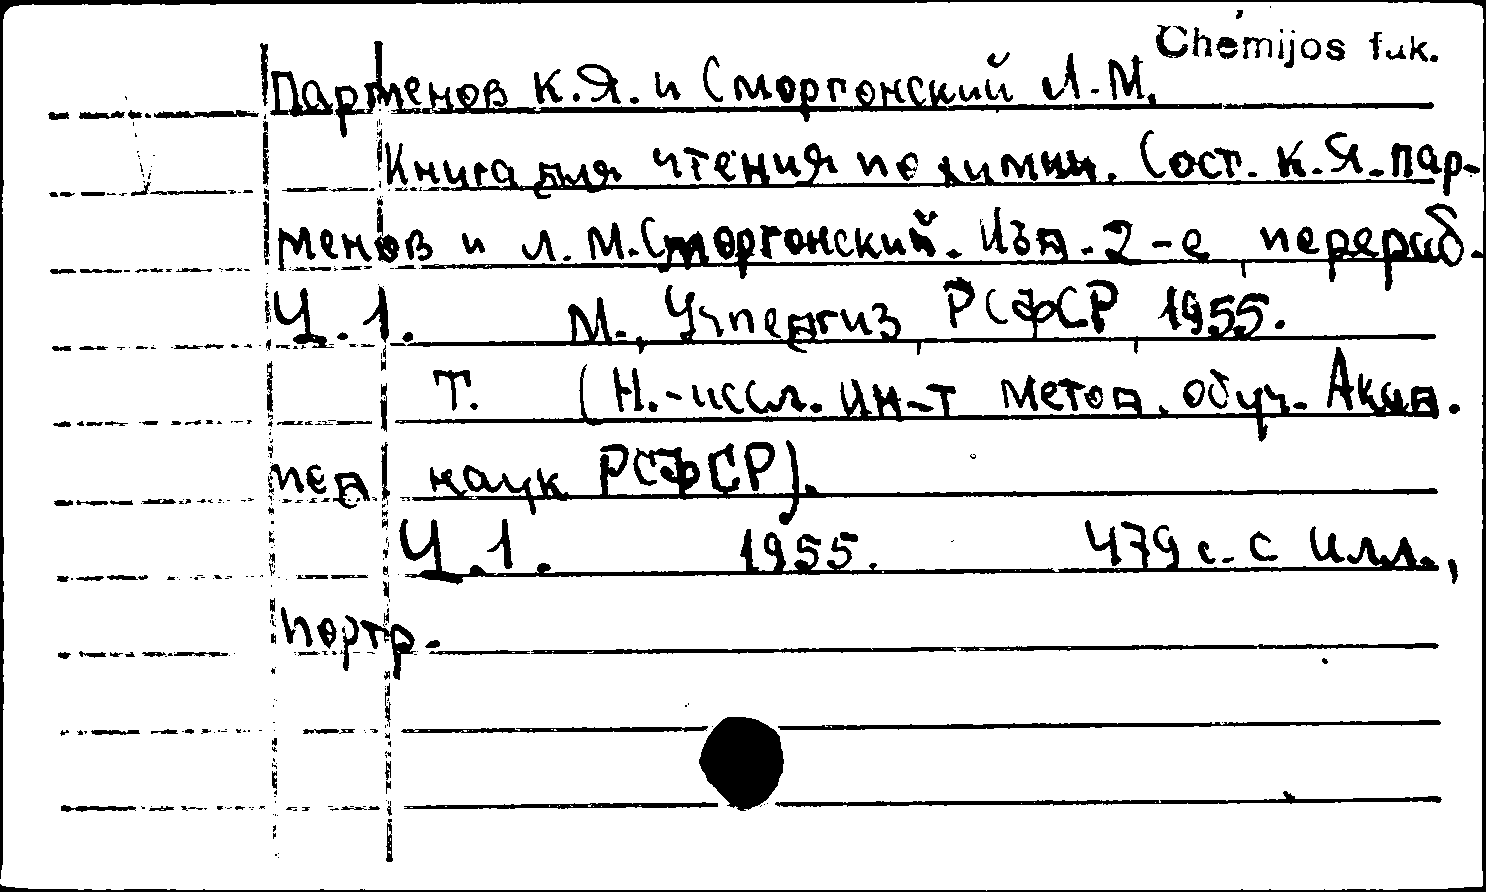 Chemijos fuk.
Парменов К.Я. и Сморгонский Л.М.
Книга для чтения по химии. Сост. К.Я. Пар-
менов и Л.М. Сморгонский. Изд. 2-е, перераб.
Ч.1. М., Учпедгиз, РСФСР, 1955.
Т. (Н.-иссл. ин-т метод. обуч. Акад.
пед наук РСФСР).
Ч.1. 1955. 479 с. с илл.,
портр.